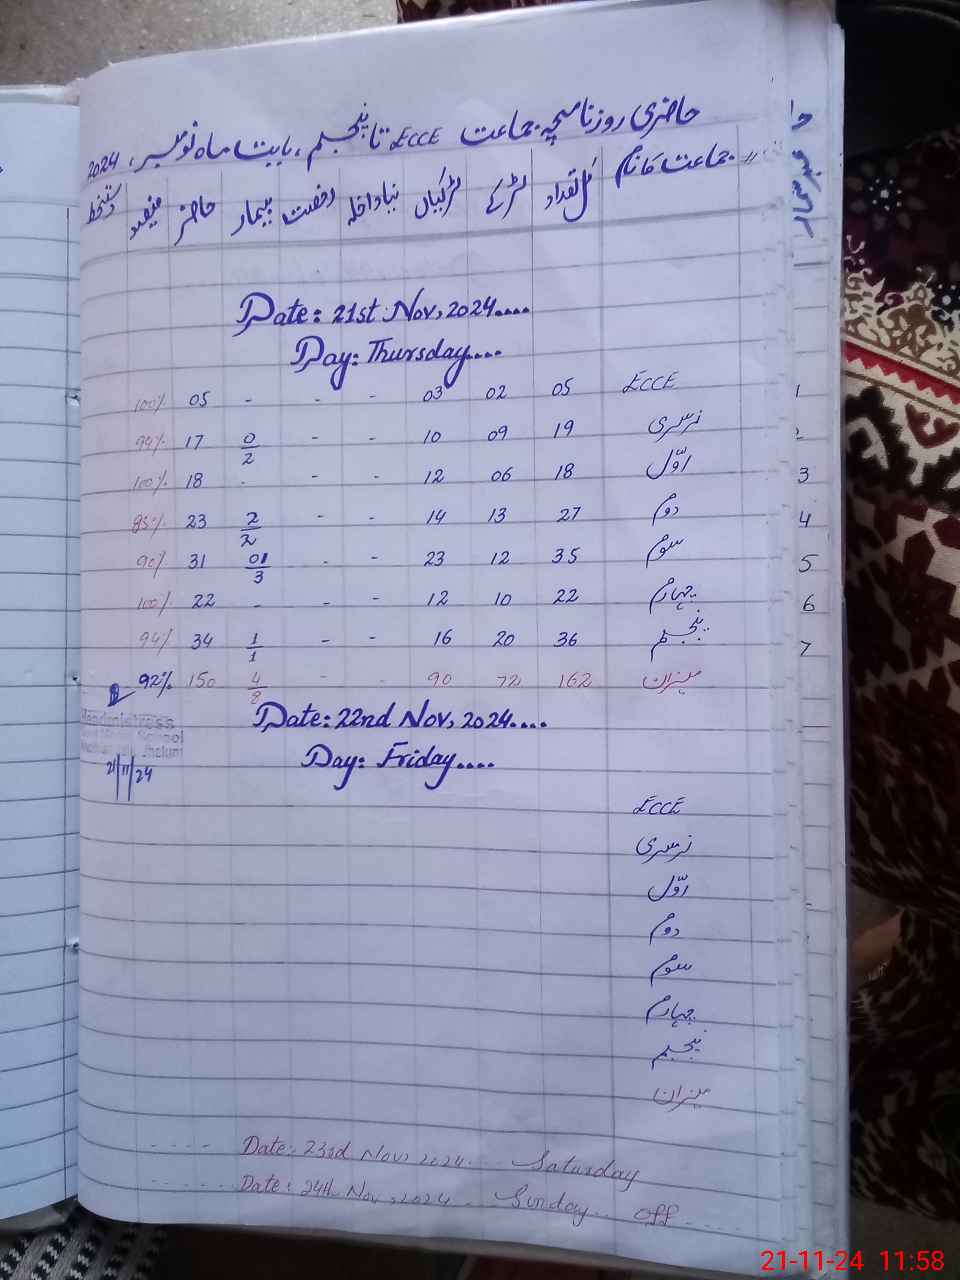 حاضری روزنامچہ جماعت ECCE تا پنجم، بابت ماہ نومبر، 2024
جماعت کا نام کل تعداد لڑکے لڑکیاں نیا داخلہ رخصت بیمار حاضر فیصد دستخط
Date: 21st Nov, 2024....
Day: Thursday....
ECCE 05 02 03 - - - 05 100%
نرسری 19 09 10 - - 0/2 17 99%
اوّل 18 06 12 - - - 18 100%
دوم 27 13 14 - - 2/2 23 85%
سوم 35 12 23 - - 01/3 31 90%
چہارم 22 10 12 - - - 22 100%
پنجم 36 20 16 - - 1/1 34 94%
میزان 162 72 90 - - 4/8 150 92%
Headmistress
School
Jhelum
21/11/24
Date: 22nd Nov, 2024....
Day: Friday....
ECCE
نرسری
اوّل
دوم
سوم
چہارم
پنجم
میزان
Date: 23rd Nov, 2024... Saturday
Date: 24th Nov, 2024 .. Sunday... off
1
2
3
4
5
6
7
21-11-24 11:58